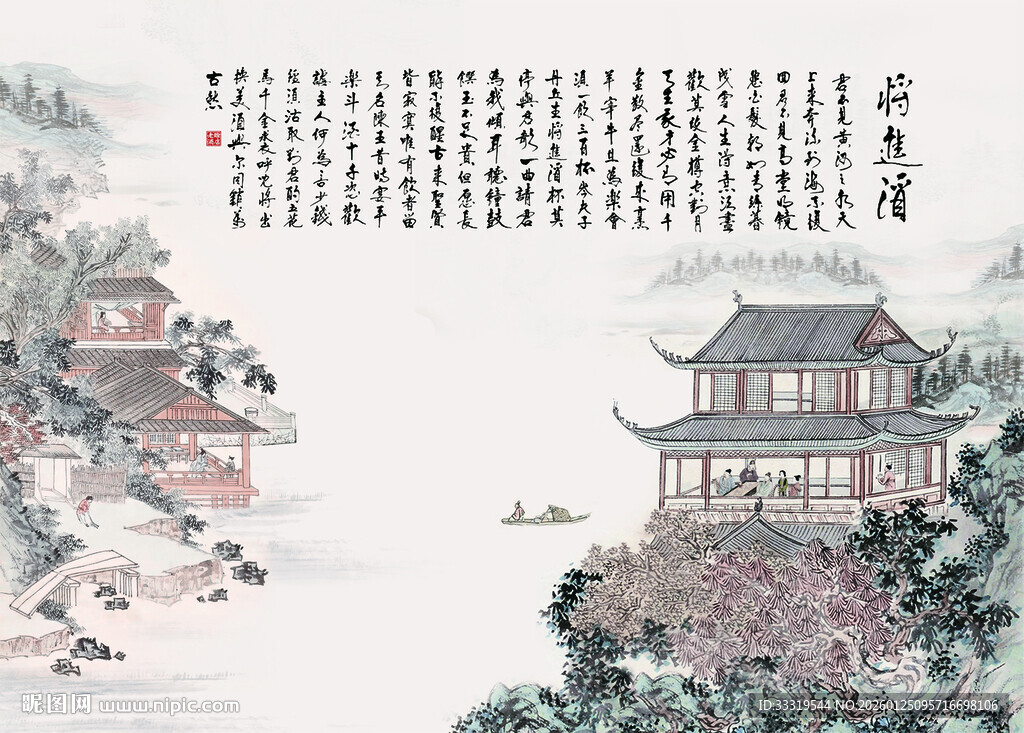 將進酒
君不見黃河之水天
上來奔流到海不復
回君不見高堂明鏡
悲白髮朝如青絲暮
成雪人生得意須盡
歡莫使金樽空對月
天生我才必有用千
金散盡還復來烹
羊宰牛且為樂會
須一飲三百杯岑夫子
丹丘生將進酒杯莫
停與君歌一曲請君
為我傾耳聽鐘鼓
饌玉不足貴但願長
醉不復醒古來聖賢
皆寂寞惟有飲者留
其名陳王昔時宴平
樂斗酒十千恣歡
謔主人何為言少錢
徑須沽取對君酌五花
馬千金裘呼兒將出
換美酒與爾同銷萬
古愁
昵图网 www.nipic.com
ID:33319544 NO:20260125095716698106